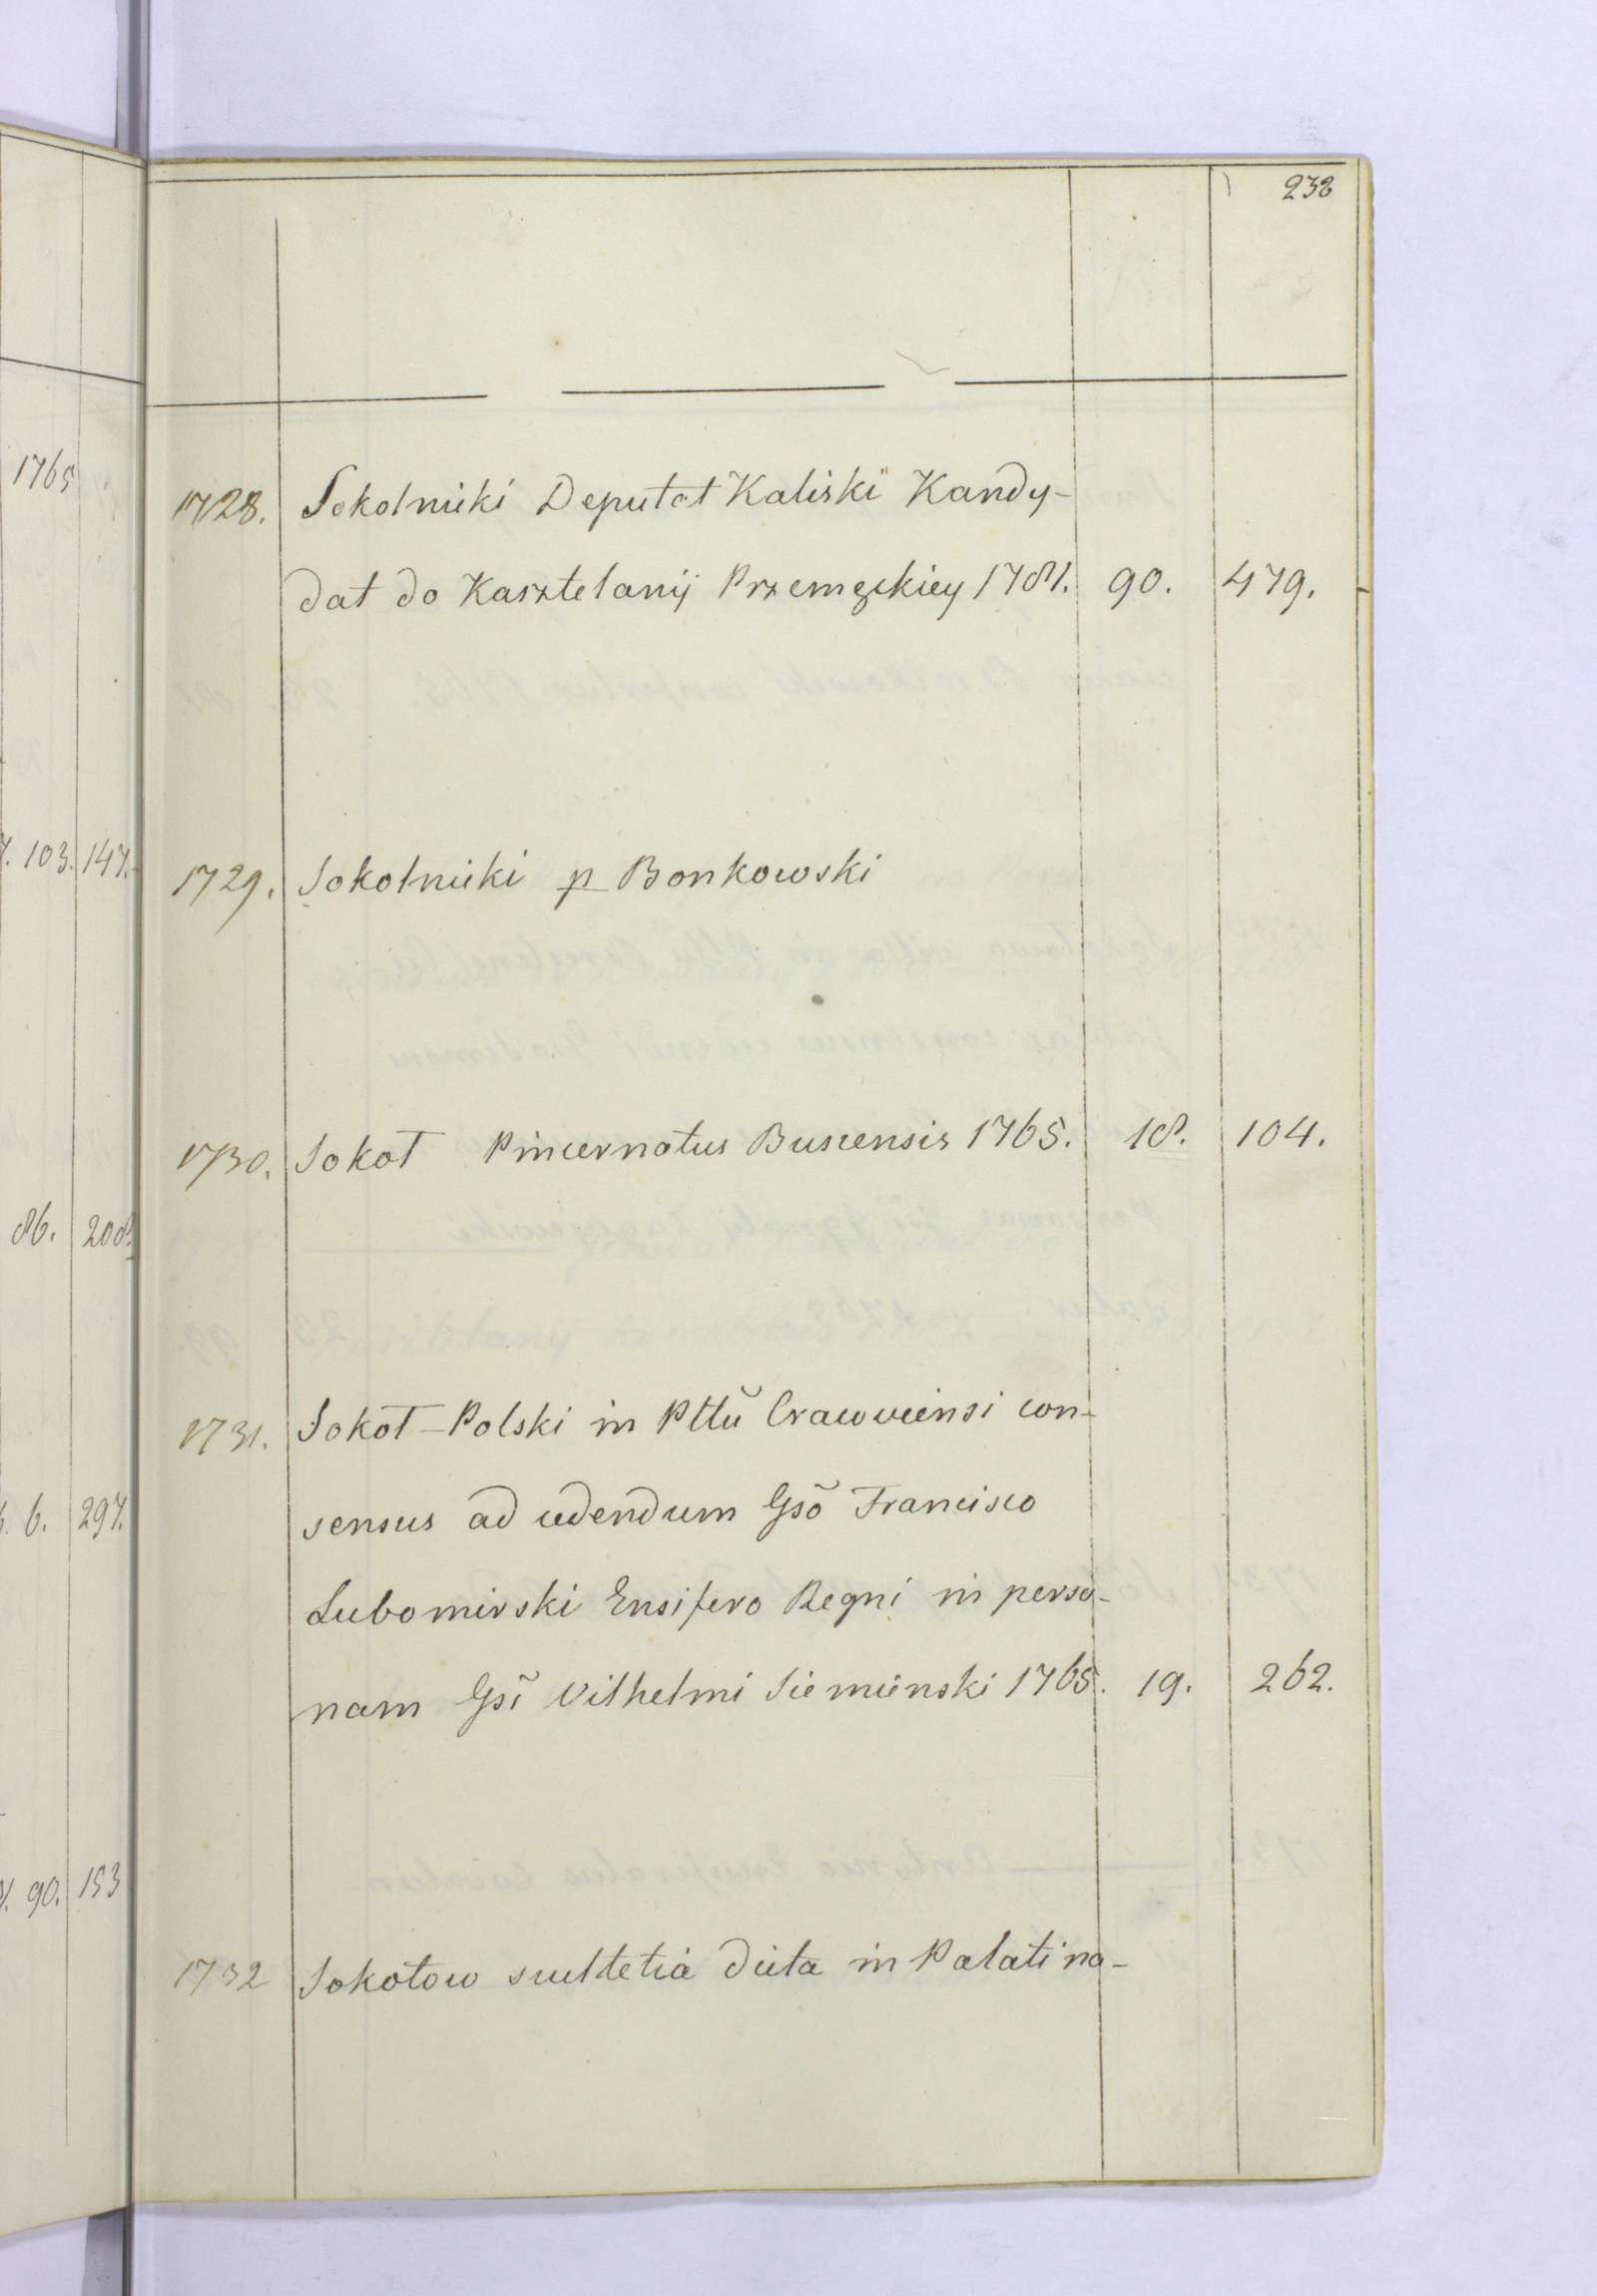 232
1728. Sokolnicki Deputat Kaliski Kandy-
dat do Kasztelanij Przemęckiey 1781. 90. 479.
1729. Sokolnicki p Bonkowski
1730. Sokoł Pincernatus Buscensis 1765. 18. 104.
1731. Sokoł-Polski in Pttũ Cracoviensi con-
sensus ad cedendum Gsõ Francisco
Lubomirski Ensifero Regni in perso-
nam Gsĩ Vilhelmi Siemienski 1765. 19. 262.
1732 Sokołow scultetia dicta in Palatina-
1765
103. 147.
86. 208.
6. 297.
90. 153